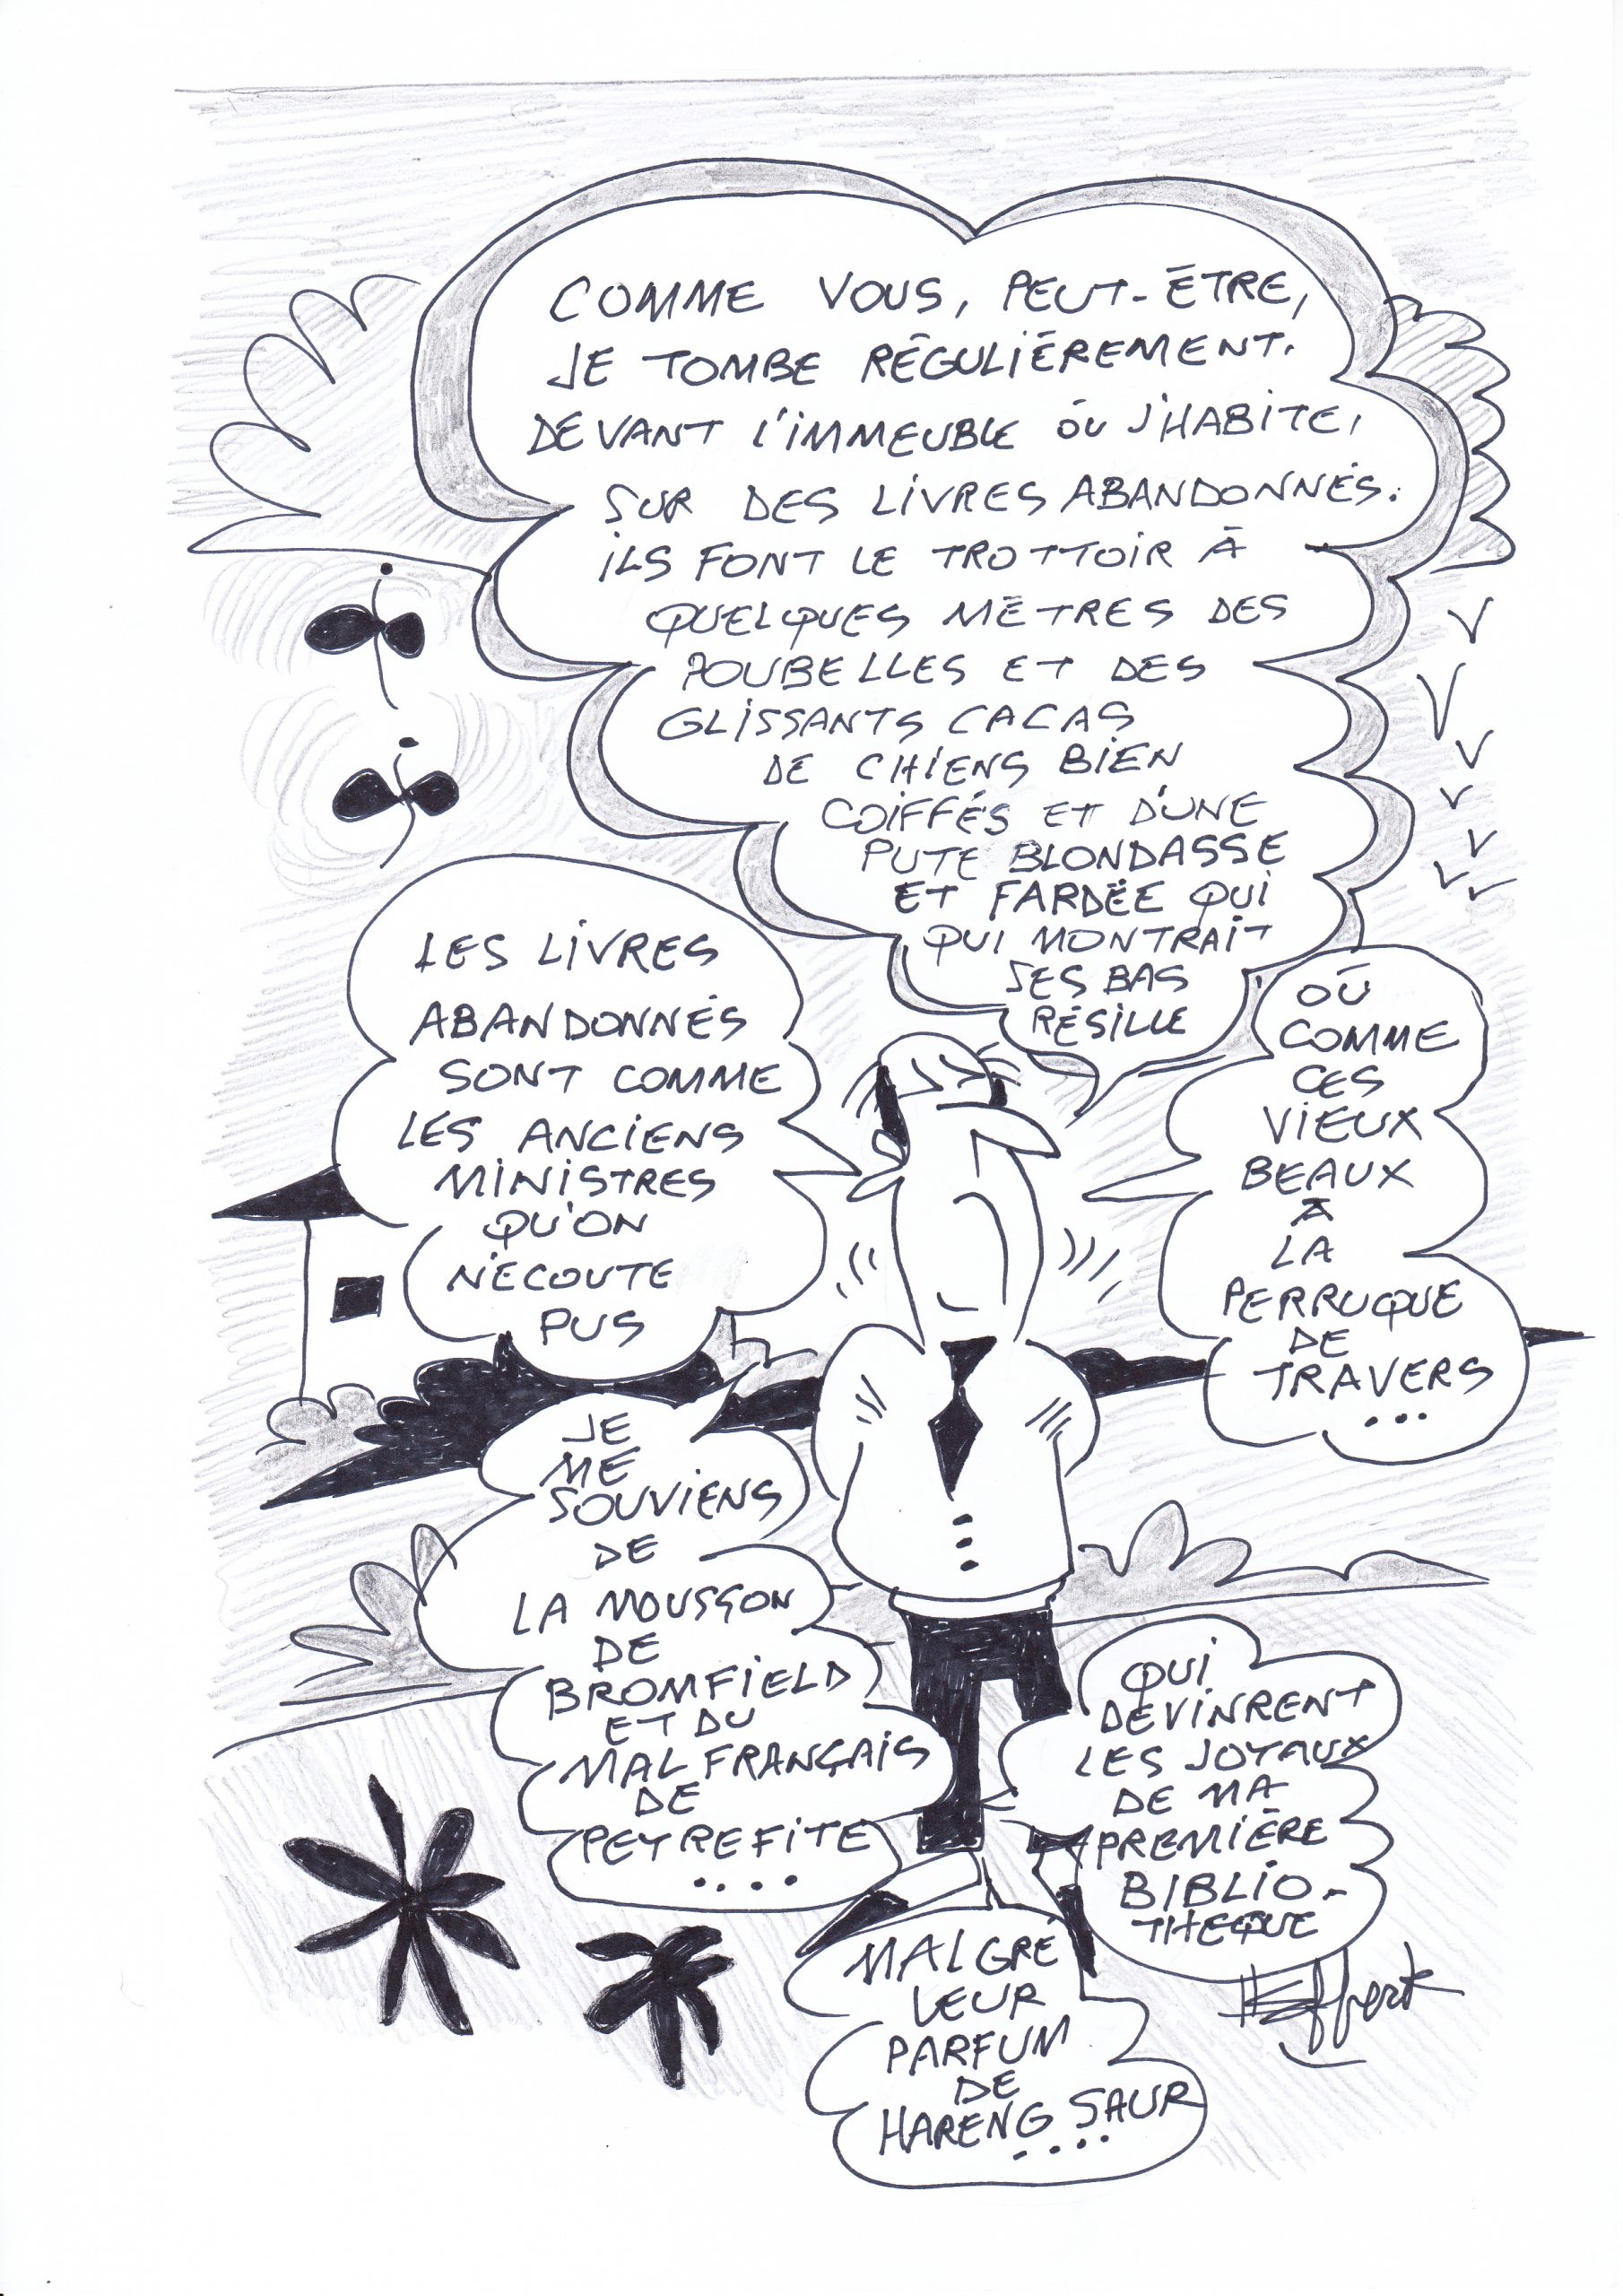 COMME VOUS, PEUT-ÊTRE,
JE TOMBE RÉGULIÈREMENT.
DEVANT L'IMMEUBLE OÙ J'HABITE,
SUR DES LIVRES ABANDONNÉS.
ILS FONT LE TROTTOIR À
QUELQUES MÈTRES DES
POUBELLES ET DES
GLISSANTS CACAS
DE CHIENS BIEN
COIFFÉS ET D'UNE
PUTE BLONDASSE
ET FARDÉE QUI
QUI MONTRAIT
SES BAS
RÉSILLE
LES LIVRES
ABANDONNÉS
SONT COMME
LES ANCIENS
MINISTRES
QU'ON
N'ECOUTE
PUS
OÙ
COMME
CES
VIEUX
BEAUX
À
LA
PERRUQUE
DE
TRAVERS
...
JE
ME
SOUVIENS
DE
LA MOUSSON
DE
BROMFIELD
ET DU
MAL FRANÇAIS
DE
PEYREFITE
....
QUI
DEVINRENT
LES JOYAUX
DE MA
PREMIÈRE
BIBLIO-
THEQUE
MALGRÉ
LEUR
PARFUM
DE
HARENG SAUR
....